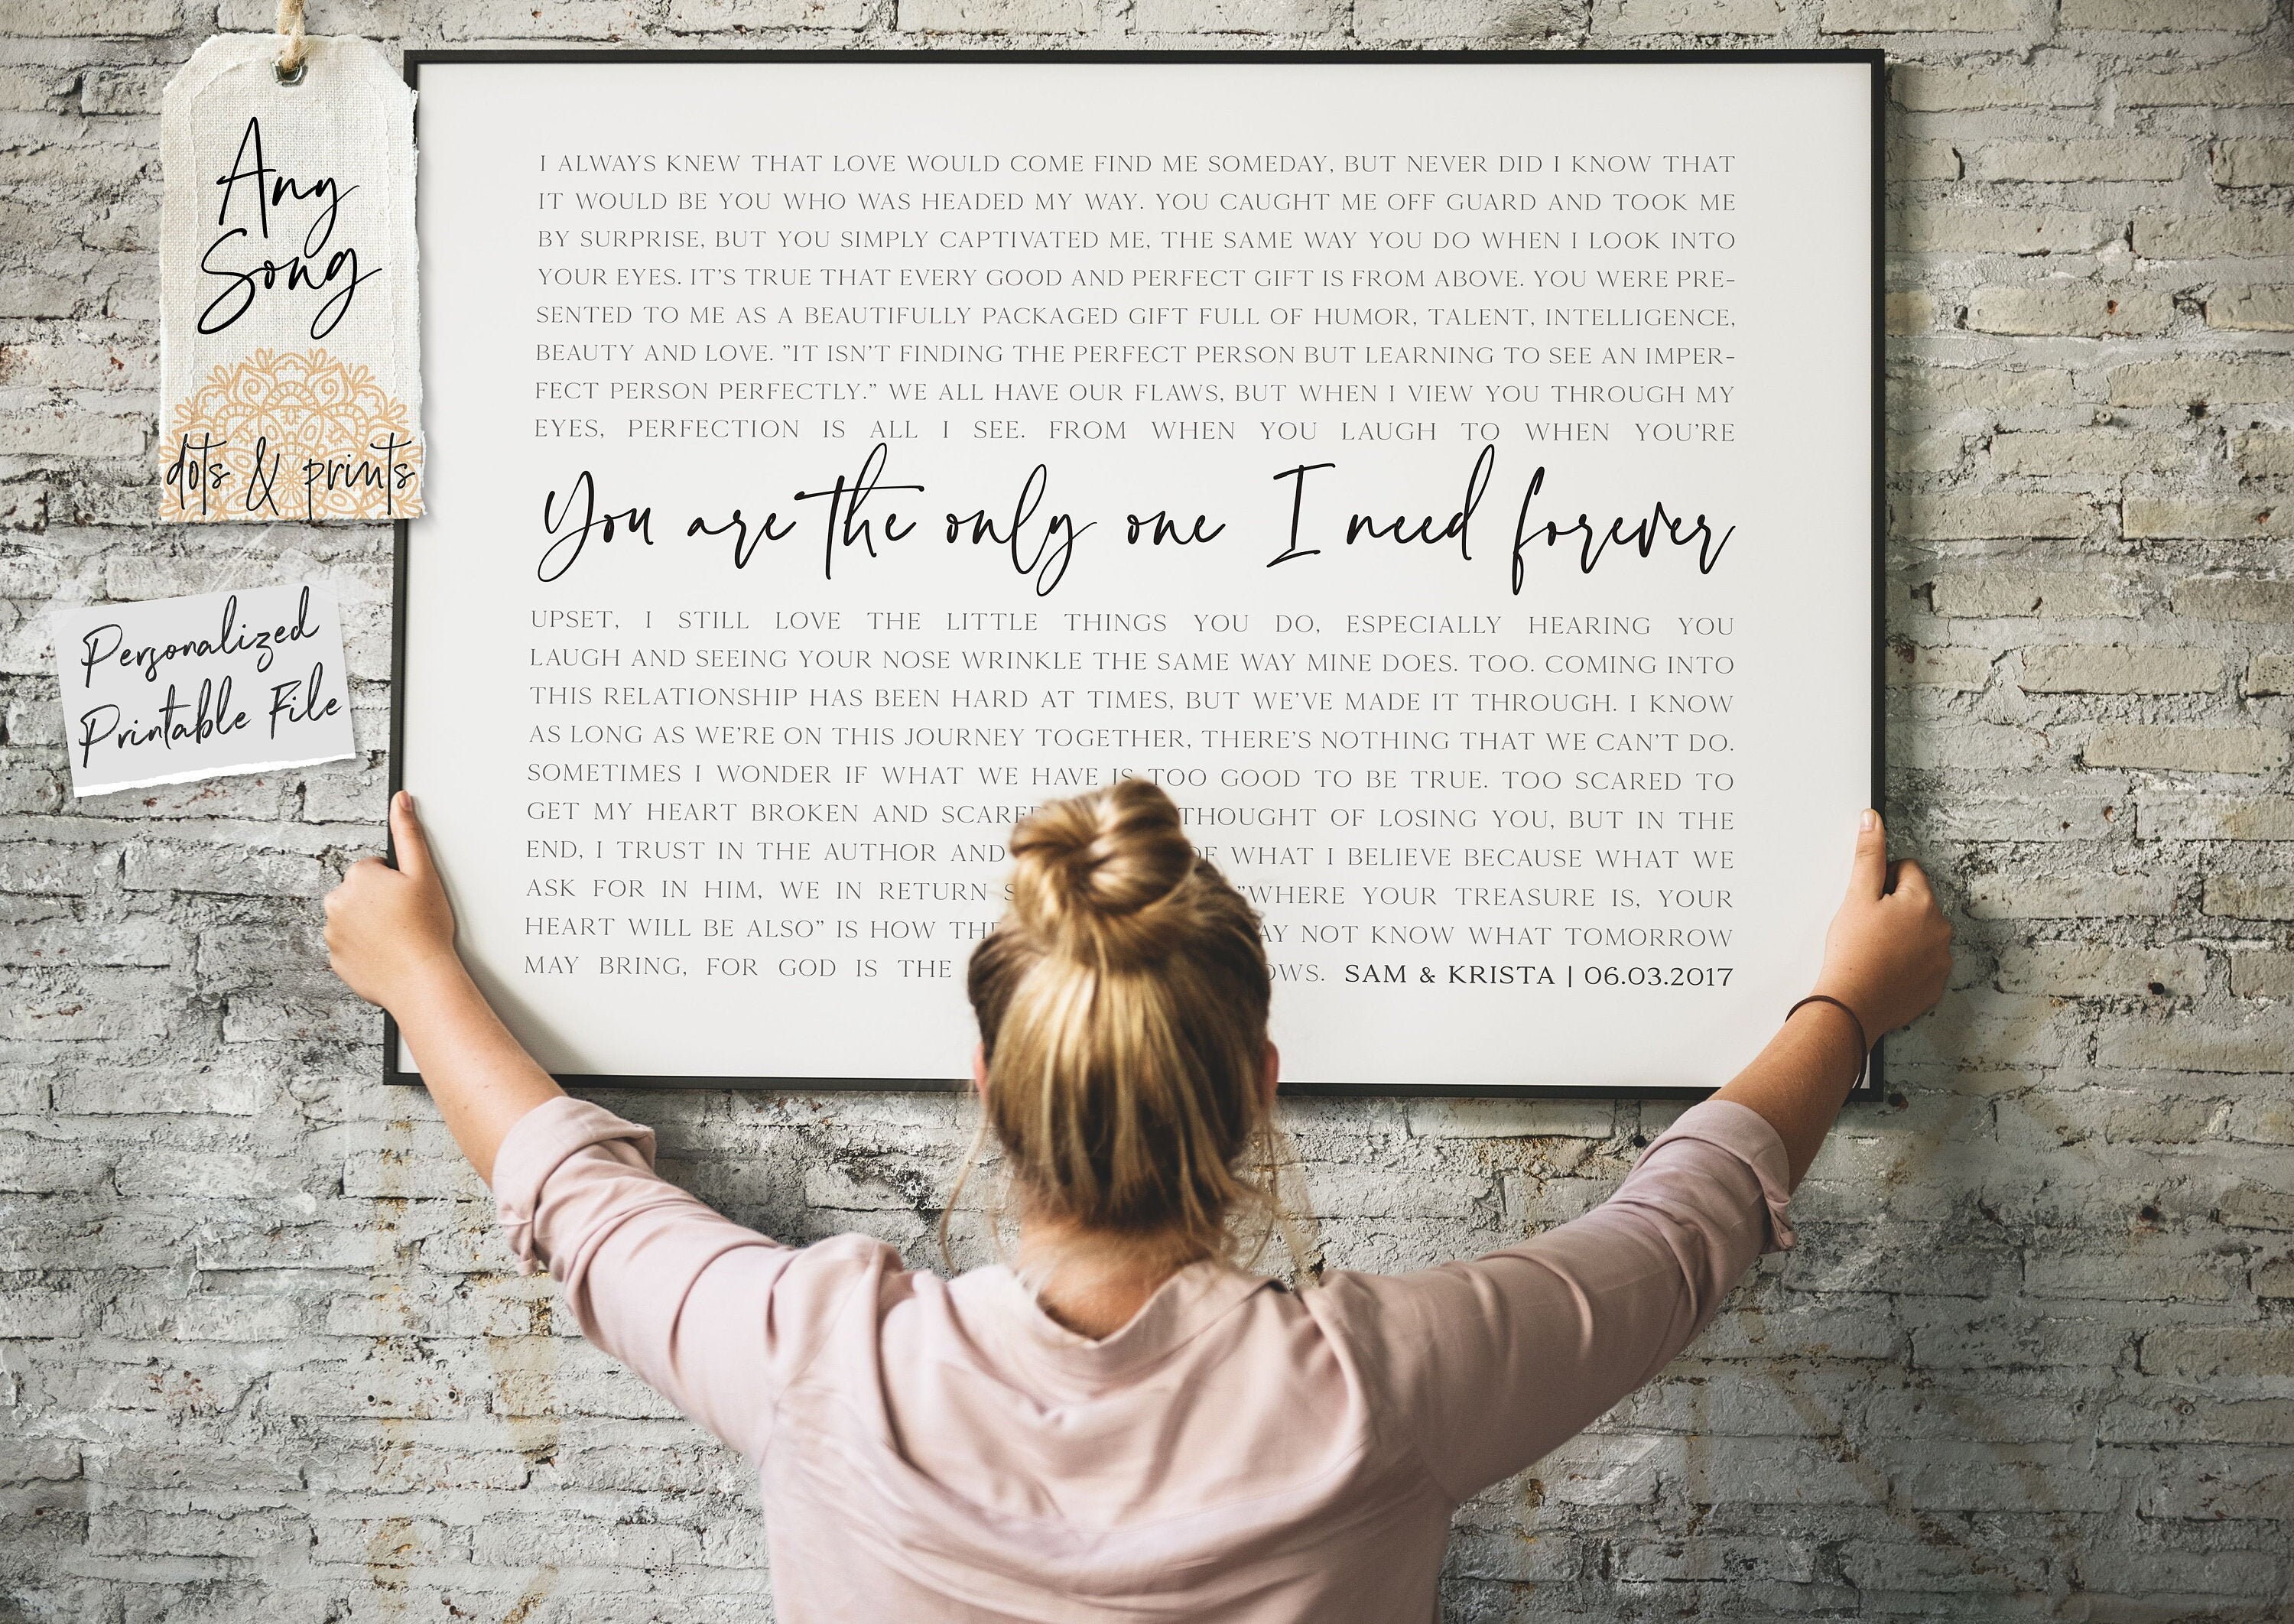 Any
Song
dots & prints
Personalized
Printable File
I ALWAYS KNEW THAT LOVE WOULD COME FIND ME SOMEDAY, BUT NEVER DID I KNOW THAT
IT WOULD BE YOU WHO WAS HEADED MY WAY. YOU CAUGHT ME OFF GUARD AND TOOK ME
BY SURPRISE, BUT YOU SIMPLY CAPTIVATED ME, THE SAME WAY YOU DO WHEN I LOOK INTO
YOUR EYES. IT'S TRUE THAT EVERY GOOD AND PERFECT GIFT IS FROM ABOVE. YOU WERE PRE-
SENTED TO ME AS A BEAUTIFULLY PACKAGED GIFT FULL OF HUMOR, TALENT, INTELLIGENCE,
BEAUTY AND LOVE. "IT ISN'T FINDING THE PERFECT PERSON BUT LEARNING TO SEE AN IMPER-
FECT PERSON PERFECTLY." WE ALL HAVE OUR FLAWS, BUT WHEN I VIEW YOU THROUGH MY
EYES, PERFECTION IS ALL I SEE. FROM WHEN YOU LAUGH TO WHEN YOU'RE
You are the only one I need forever
UPSET, I STILL LOVE THE LITTLE THINGS YOU DO, ESPECIALLY HEARING YOU
LAUGH AND SEEING YOUR NOSE WRINKLE THE SAME WAY MINE DOES. TOO. COMING INTO
THIS RELATIONSHIP HAS BEEN HARD AT TIMES, BUT WE'VE MADE IT THROUGH. I KNOW
AS LONG AS WE'RE ON THIS JOURNEY TOGETHER, THERE'S NOTHING THAT WE CAN'T DO.
SOMETIMES I WONDER IF WHAT WE HAVE IS TOO GOOD TO BE TRUE. TOO SCARED TO
GET MY HEART BROKEN AND SCARED THOUGHT OF LOSING YOU, BUT IN THE
END, I TRUST IN THE AUTHOR AND OF WHAT I BELIEVE BECAUSE WHAT WE
ASK FOR IN HIM, WE IN RETURN "WHERE YOUR TREASURE IS, YOUR
HEART WILL BE ALSO" IS HOW NOT KNOW WHAT TOMORROW
MAY BRING, FOR GOD IS THE SAM & KRISTA | 06.03.2017